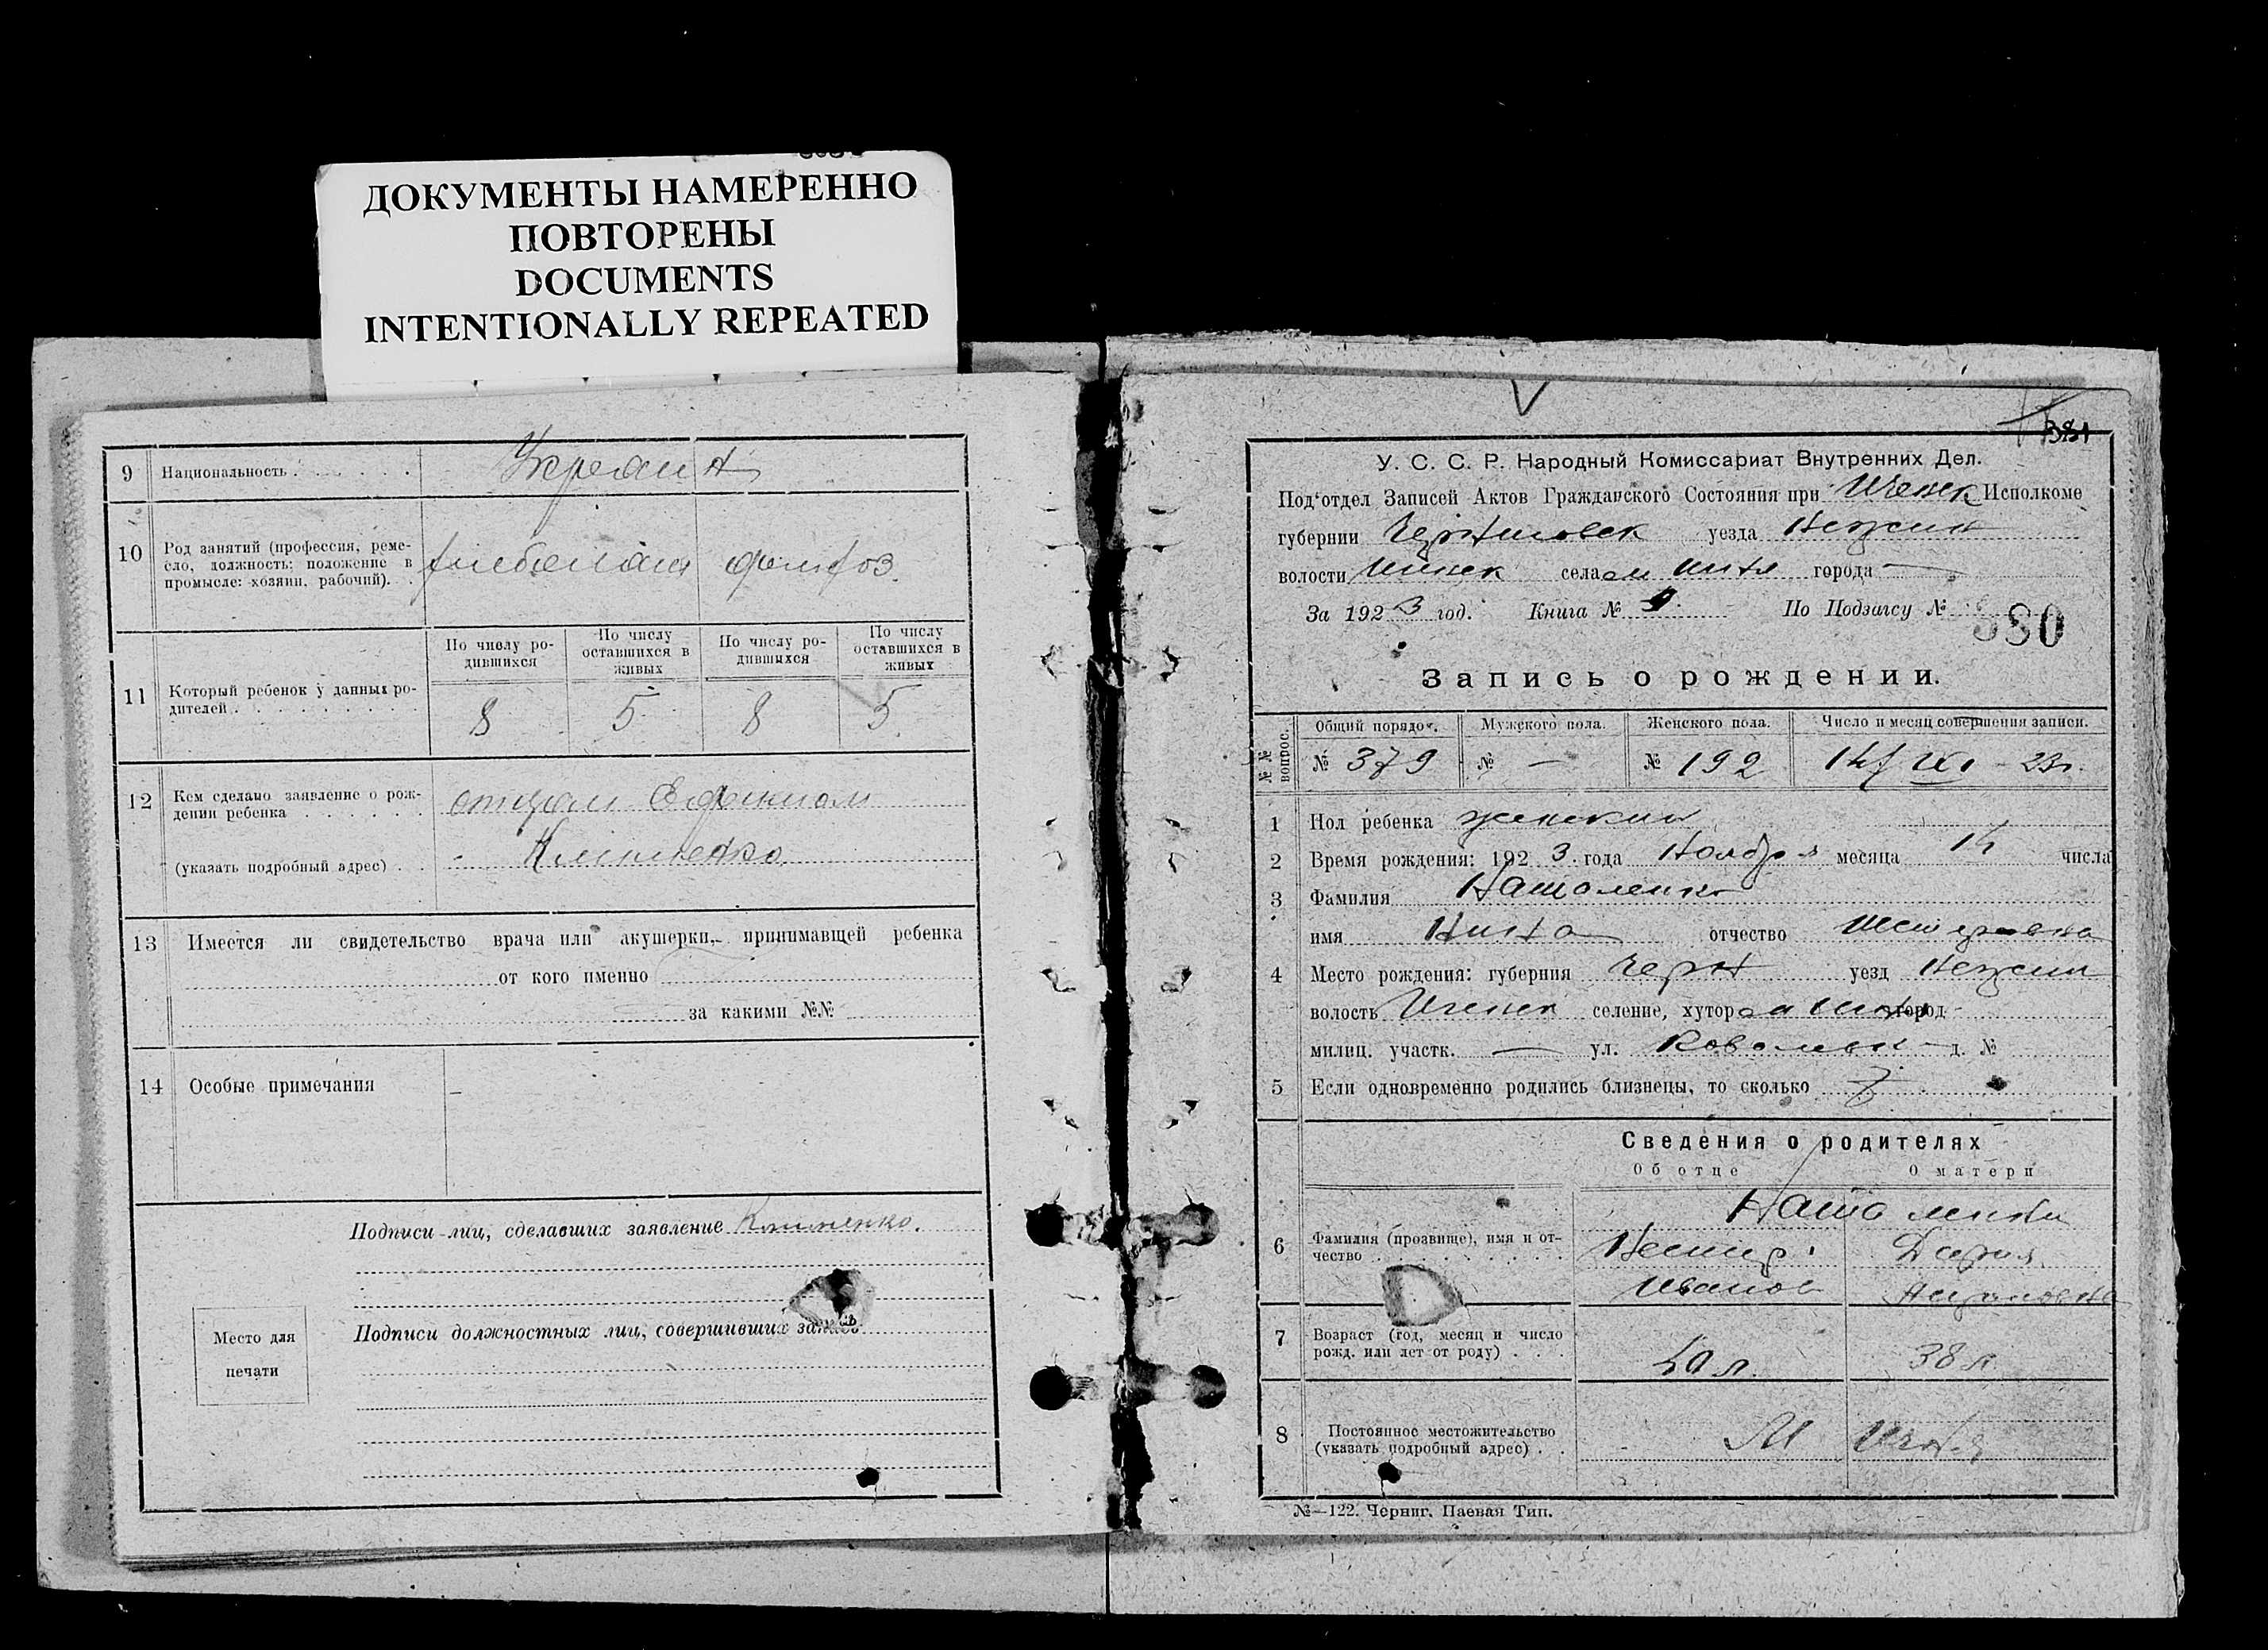 ДОКУМЕНТЫ НАМЕРЕННО
ПОВТОРЕНЫ
DOCUMENTS
INTENTIONALLY REPEATED
9 Национальность
10 Род занятий (профессия, реме-
сло, должность: положение в
промысле: хозяин, рабочий).
11 Который ребенок у данных ро-
дителей
По числу ро-
дившихся
По числу
оставшихся в
живых
По числу ро-
дившихся
По числу
оставшихся в
живых
8 5 8 5
12 Кем сделано заявление о рож-
дении ребенка отцом Ефимом
(указать подробный адрес) Клименко
13 Имеется ли свидетельство врача или акушерки, принимавшей ребенка
от кого именно
за какими №№
14 Особые примечания –
Подписи лиц, сделавших заявление Клименко.
Подписи должностных лиц, совершивших запись
Место для
печати
У. С. С. Р. Народный Комиссариат Внутренних Дел.
Под'отдел Записей Актов Гражданского Состояния при Иченск Исполкоме
губернии Черниговск уезда Нежин
волости Иченск села м Ичня города —
За 1923 год. Книга № По Подзагсу № 380
Запись о рождении.
№№ вопрос.
Общий порядок. Мужского пола. Женского пола. Число и месяц совершения записи.
№ 379 № — № 192 14/XI - 23г.
1 Пол ребенка женский
2 Время рождения: 1923 года Ноября месяца 14 числа
3 Фамилия
имя Нина отчество
4 Место рождения: губерния Черн уезд Нежин
волость Иченск селение, хутор м Ичня город -
милиц. участк. — ул. д. №
5 Если одновременно родились близнецы, то сколько
Сведения о родителях
Об отце О матери
6 Фамилия (прозвище), имя и от-
чество
Нестер Дария
Иванов
7 Возраст (год, месяц и число
рожд. или лет от роду) 38 л
8 Постоянное местожительство
(указать подробный адрес) М Ичня
№—122. Черниг. Паевая Тип.